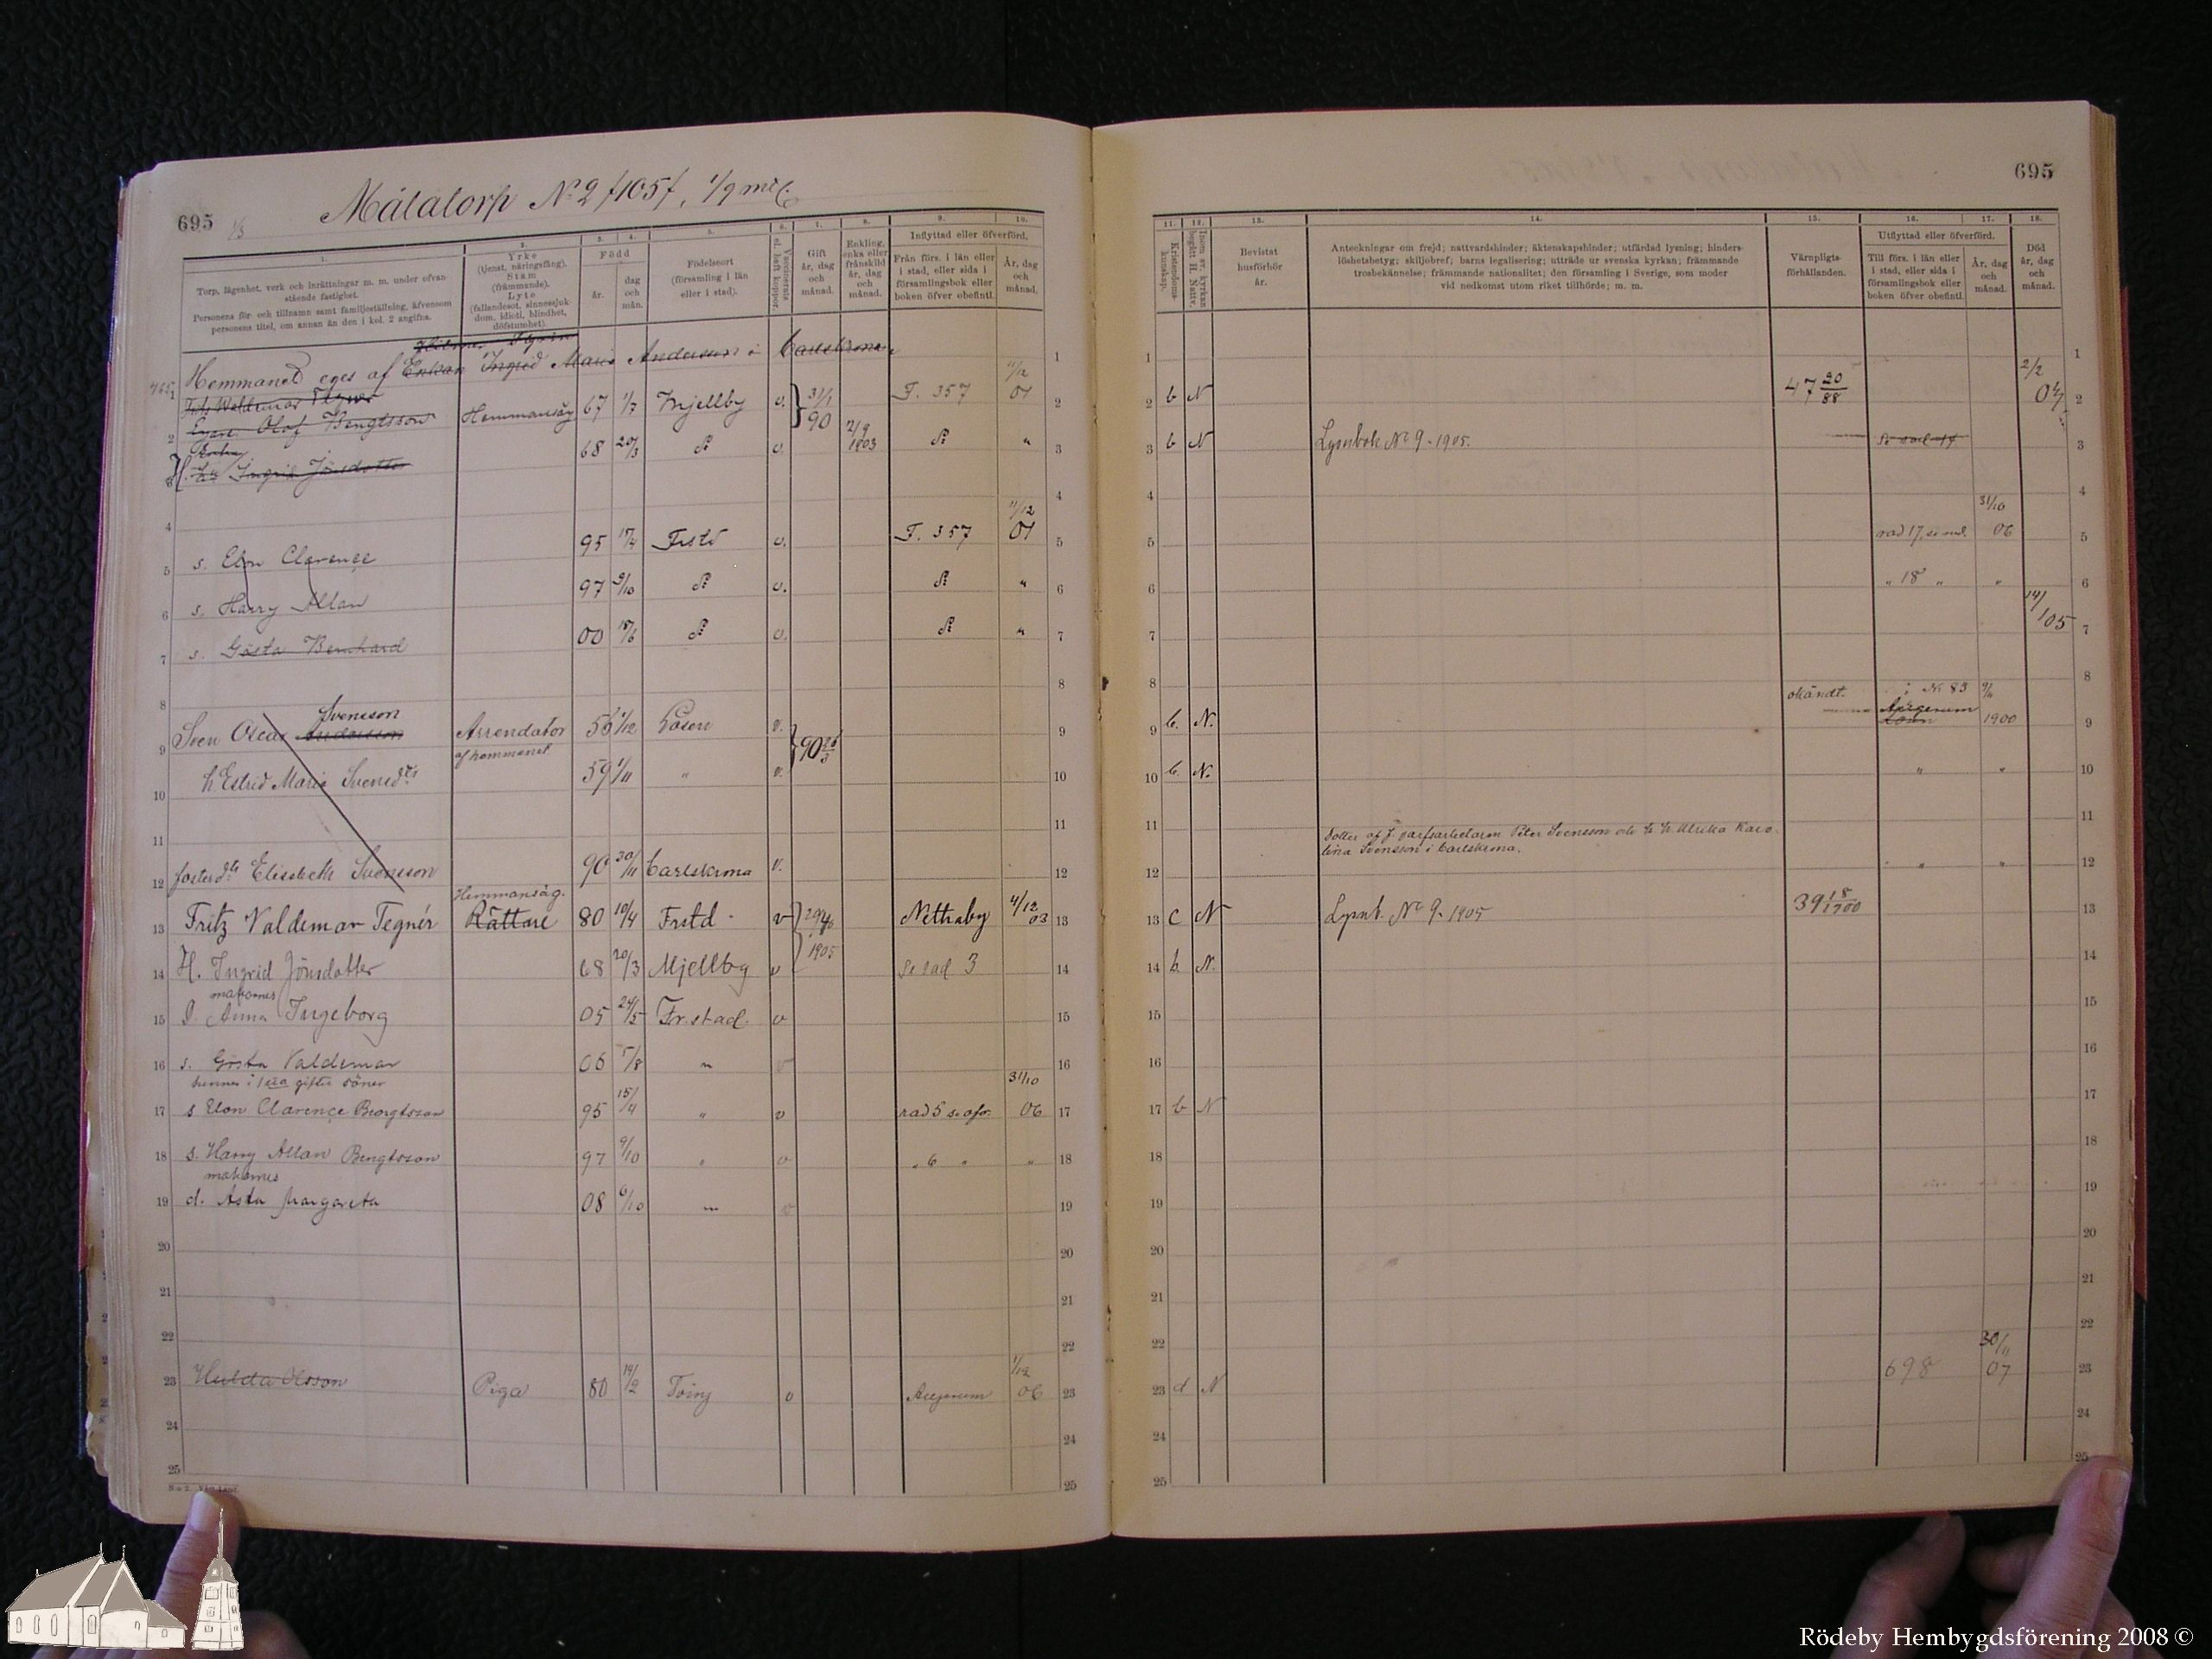 695
1/3
Målatorp No 2 f105f, 1/9 mtl.
1.
Torp, lägenhet, verk och inrättningar m. m. under ofvanstående fastighet.
Personens för- och tillnamn samt familjeställning, äfvensom personens titel, om annan än den i kol. 2 angifna.
2.
Yrke
(tjenst, näringsfång).
Stam
(främmande).
Lyte
(fallandesot, sinnessjukdom, idioti, blindhet, döfstumhet).
3. 4.
Född
år.
dag och mån.
5.
Födelseort
(församling i län eller i stad).
6.
7.
Gift
år, dag och månad.
8.
Enkling, enka eller frånskild år, dag och månad.
9. 10.
Inflyttad eller öfverförd.
Från förs. i län eller i stad, eller sida i församlingsbok eller boken öfver obefintl.
År, dag och månad.
Hemmanet eges af Enkan Ingrid Maria Anderson i Carlskrona
Fritz Waldemar Tegner
Egare Olof Bengtsson Hemmansäg 67 1/7 Mjellby v. 31/1 90 F. 357 11/12 01
H. Ingrid Jönsdotter 68 20/3 v. 2/9 1903 "
s. Elon Clarence 95 15/4 Frstd v. F. 357 11/12 01
s. Harry Allan 97 9/10 v. "
s. Gösta Bernhard 00 v. "
Sven Oscar Andersson Svensson Arrendator af hemmanet 56 1/12 Lösen v. 90
h Estrid Maria Svensdtr 59 1/11 " v.
fosterdtr Elisabeth Svensson 90 30/11 Carlskrona v.
Hemmansäg.
Fritz Valdemar Tegnér Rättare 80 10/4 Frstd v Nettraby 4/12 03
H. Ingrid Jönsdotter 68 20/3 Mjellby v 1905 se rad 3
makarnes
D. Anna Ingeborg 05 24/5 Fr.stad. v
s. Gösta Valdemar 06 5/8 "
hennes i 1sta giftet söner
s Elon Clarence Bengtsson 95 15/4 " v rad 5 se ofv. 31/10 06
s. Harry Allan Bengtsson 97 9/10 " v " 6 " "
makarnes
d. Asta Margareta 08 6/10 "
Hulda Olsson Piga 80 14/2 Tving v Augerum 1/12 06
695
11. 12.
Kristendomskunskap.
13.
Bevistat husförhör år.
14.
Anteckningar om frejd; nattvardshinder; äktenskapshinder; utfärdad lysning; hinderslöshetsbetyg; skiljobref; barns legalisering; utträde ur svenska kyrkan; främmande trosbekännelse; främmande nationalitet; den församling i Sverige, som moder vid nedkomst utom riket tillhörde; m. m.
15.
Värnpliktsförhållanden.
16. 17.
Utflyttad eller öfverförd.
Till förs. i län eller i stad, eller sida i församlingsbok eller boken öfver obefintl.
År, dag och månad.
18.
Död
år, dag och månad.
b N 47 20/88 2/2
b N Lysnbok No 9 - 1905.
rad 17, se ned. 31/10 06
" 18 " "
14/1 05
b. N. okändt. No 83 Augerum 1900
b. N. " "
Dotter af f. varfsarbetaren Peter Svensson och h. h. Ulrika Karo-
lina Svensson i Carlskrona.
" "
c N Lysnb. No 9 - 1905 39 18/1900
b. N.
b N
d N 698 30/11 07
Rödeby Hembygdsförening 2008 ©